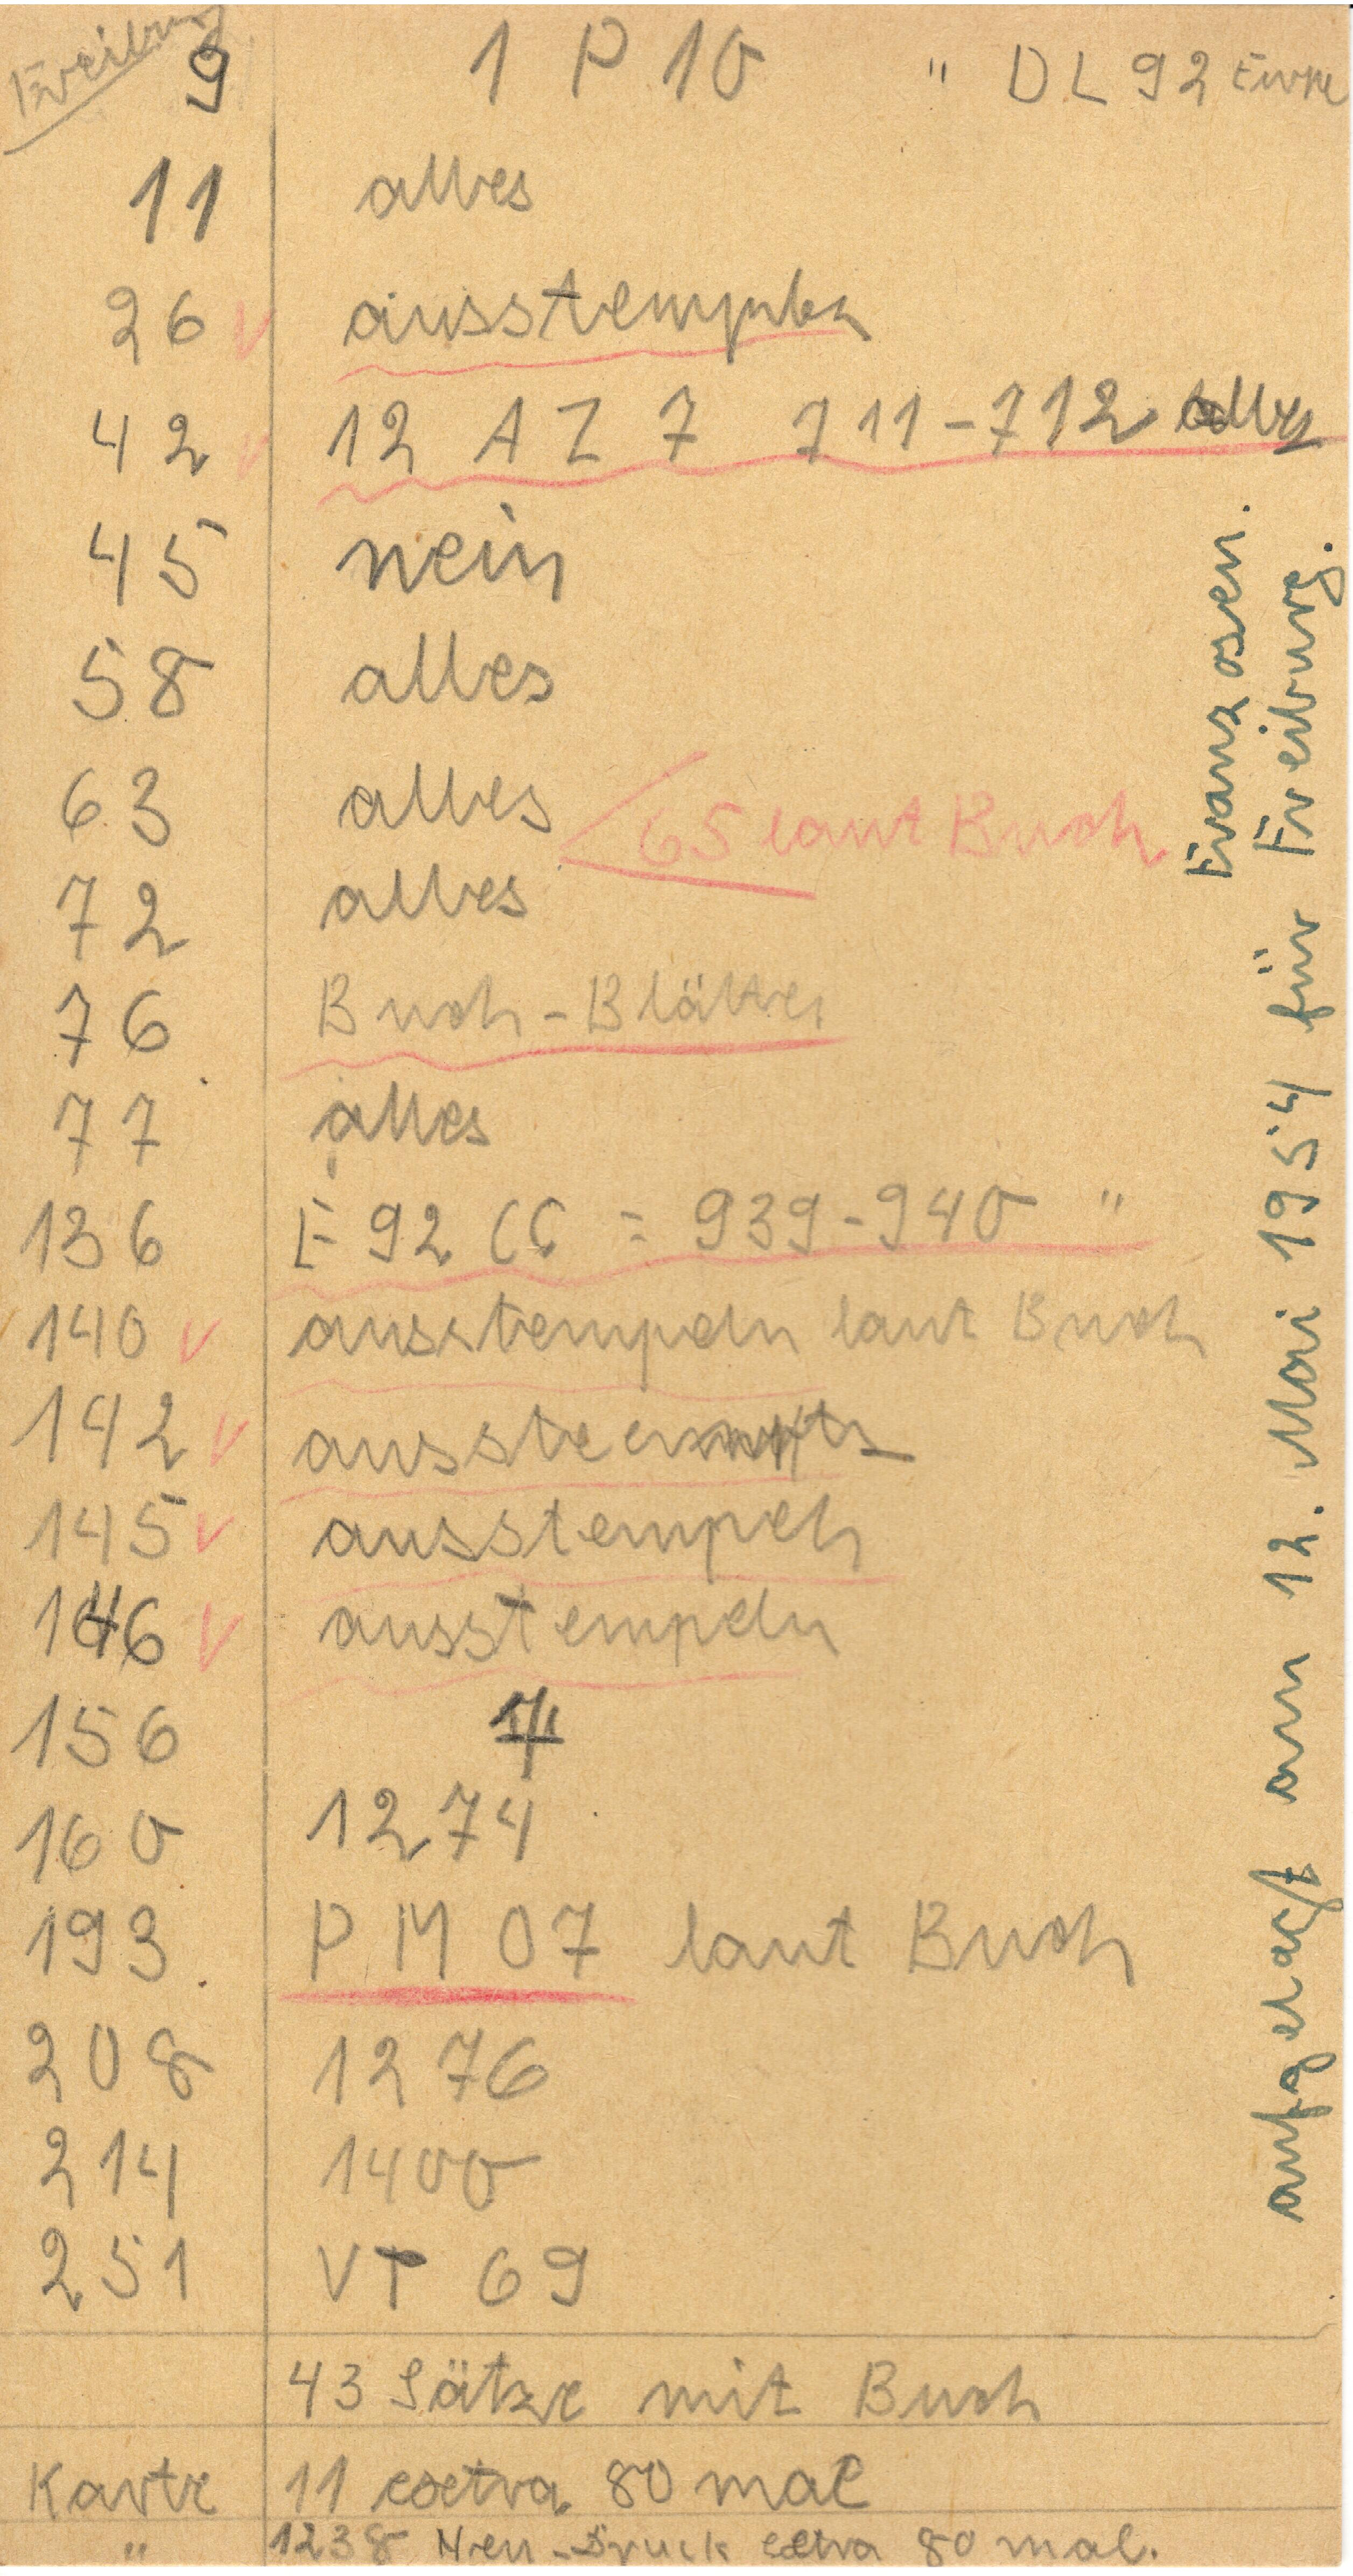 Freiburg
9 1 P 10 " DL 92
11 alles
26 ausstempeln
42 12 AZ 7 711-712 alles
45 nein
58 alles
63 alles
65 laut Buch
72 alles
76 Buch-Blätter
77 alles
136 F 92 CC = 939-940 "
140 ausstempeln laut Buch
142
145 ausstempeln
146 ausstempeln
156
160 1274
193 PM 07 laut Buch
208 1276
214 1400
251 VT 69
43 Sätze mit Buch
Karte 11 extra 80 mal
" 1238 Neu-Druck extra 80 mal.
Franzosen.
aufgelegt am 12. Mai 1954 für Freiburg.